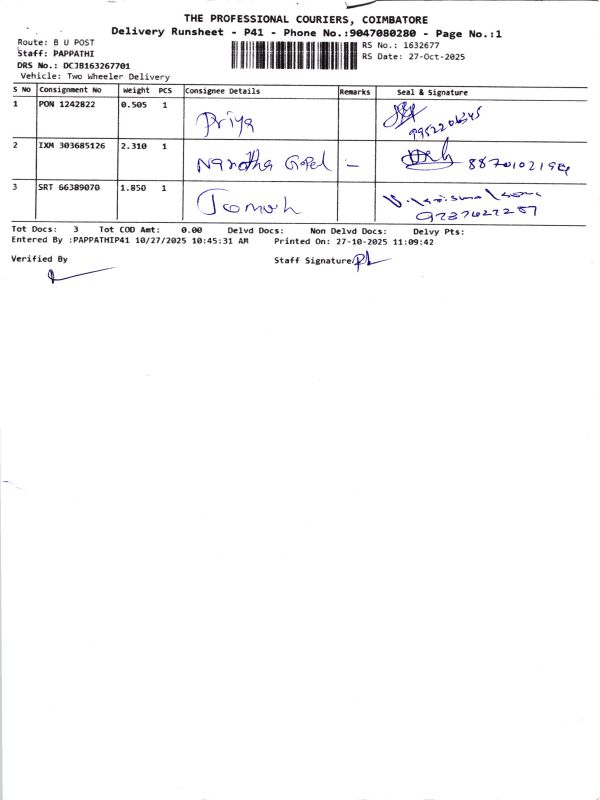 THE PROFESSIONAL COURIERS, COIMBATORE
Delivery Runsheet - P41 - Phone No.:9047080280 - Page No.:1
Route: B U POST
Staff: PAPPATHI
DRS No.: DCJB163267701
Vehicle: Two Wheeler Delivery
RS No.: 1632677
RS Date: 27-Oct-2025
S No Consignment No Weight PCS Consignee Details Remarks Seal & Signature
1 PON 1242822 0.505 1 Priya
2 IXM 303685126 2.310 1 Nandha Gopal —
3 SRT 66389070 1.850 1
Tot Docs: 3 Tot COD Amt: 0.00 Delvd Docs: Non Delvd Docs: Delvy Pts:
Entered By :PAPPATHIP41 10/27/2025 10:45:31 AM Printed On: 27-10-2025 11:09:42
Verified By Staff Signature